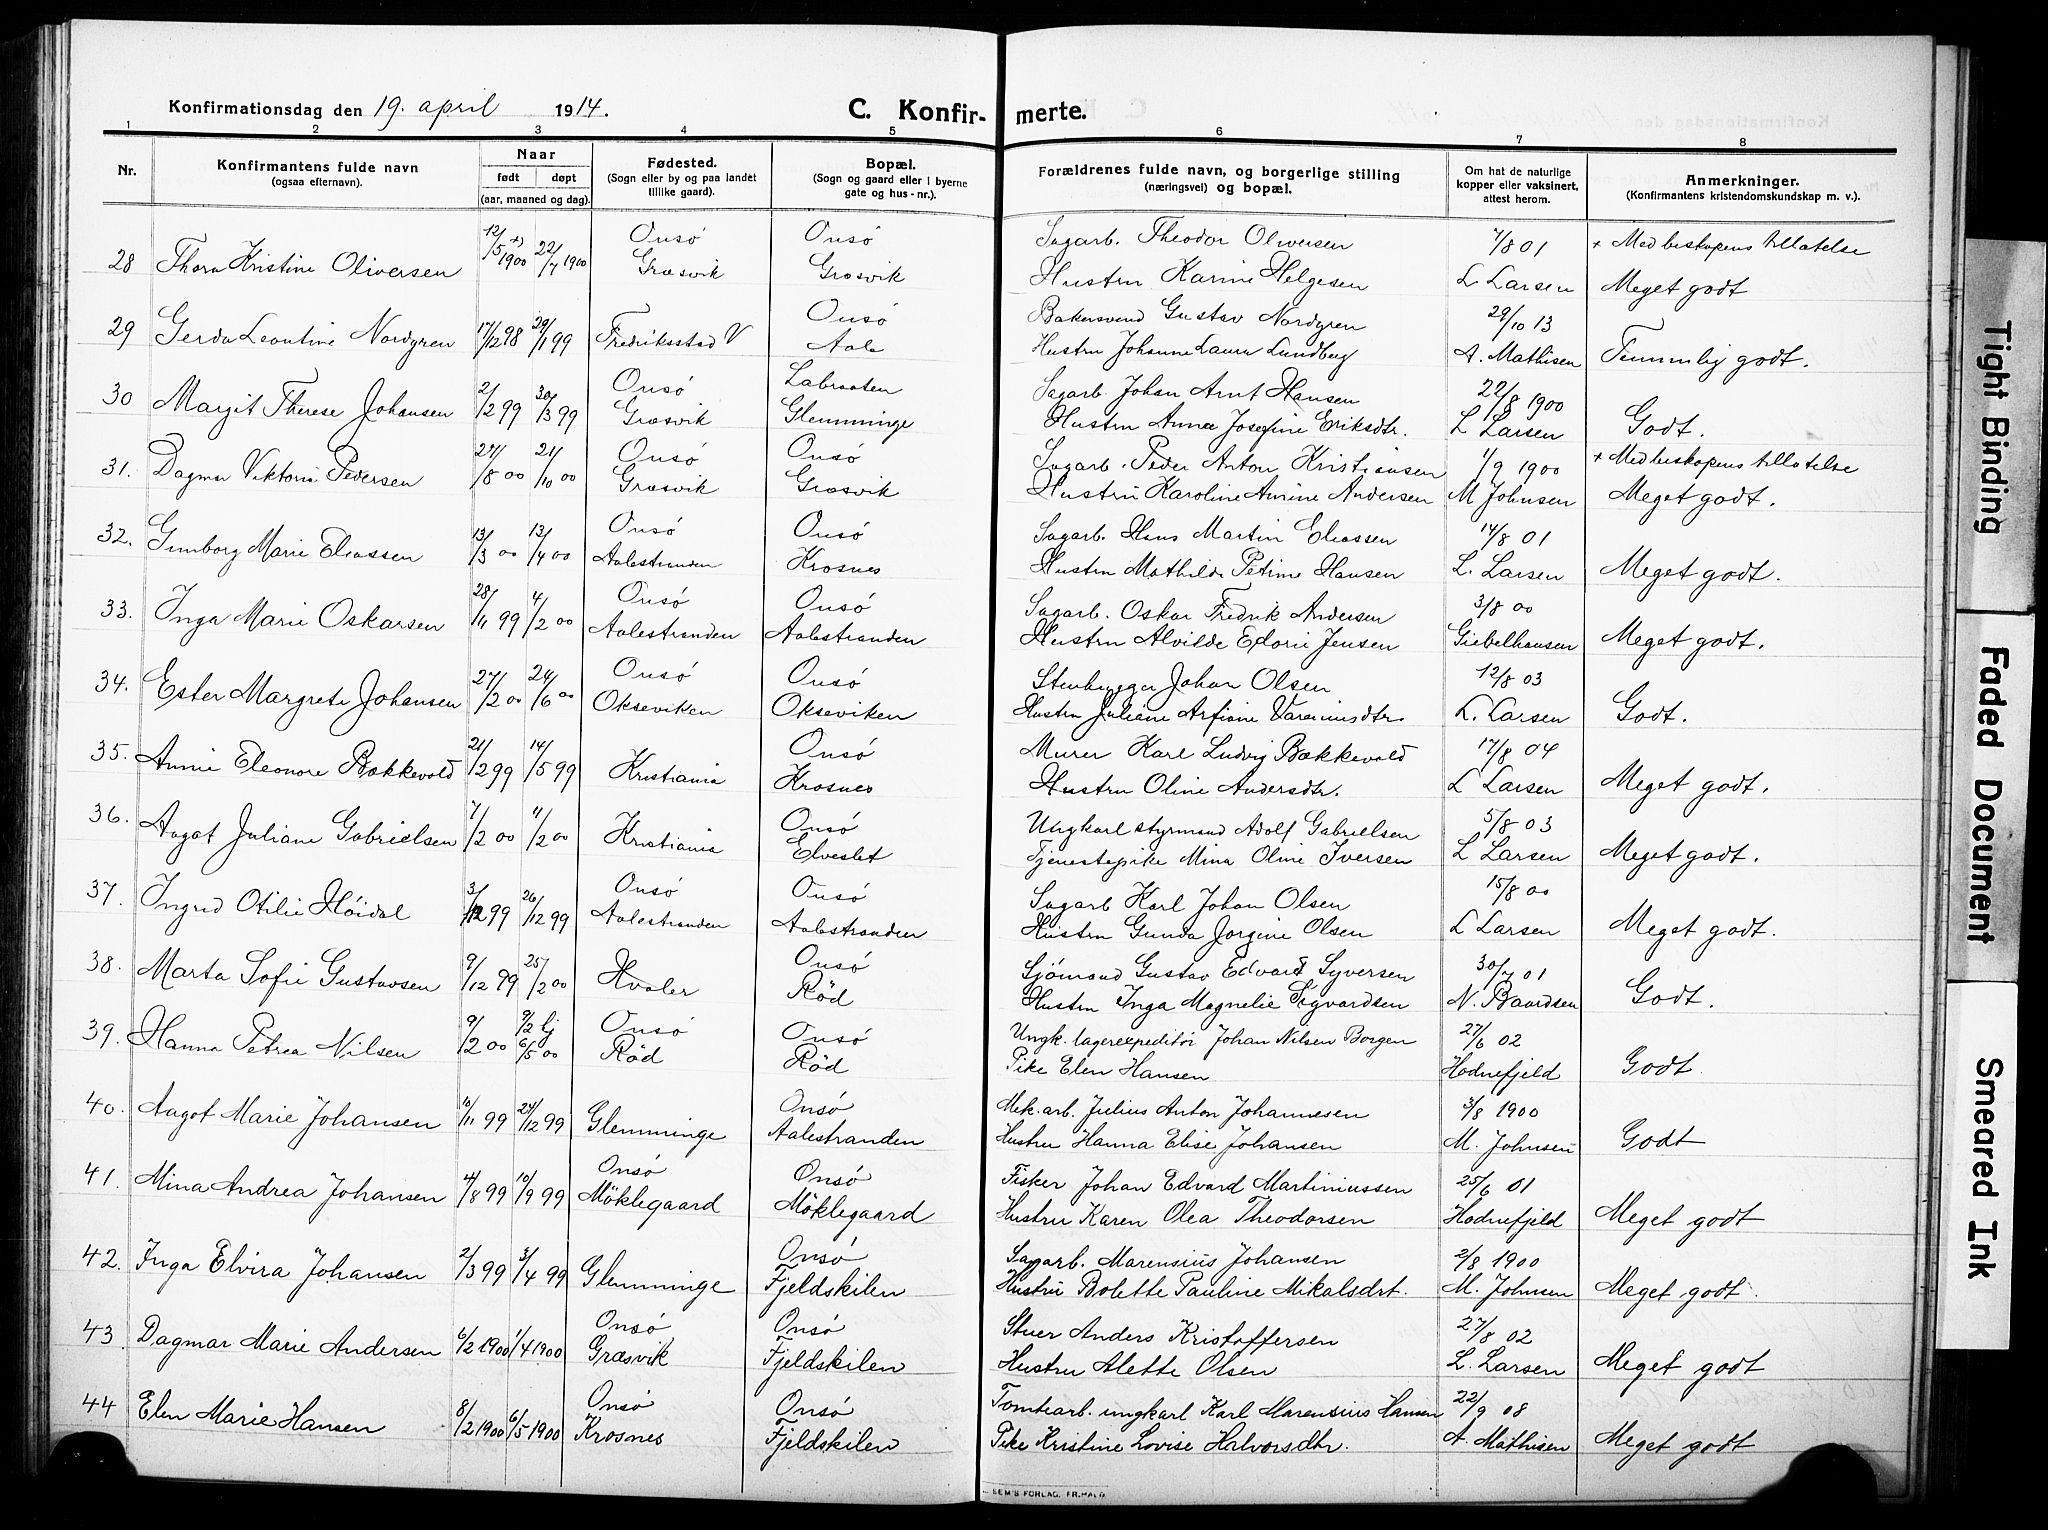 Konfirmationsdag den 19. april 1914.
C. Konfirmerte.
1 2 3 4 5 6 7 8
Nr.
Konfirmantens fulde navn
(ogsaa efternavn).
Naar
født døpt
(aar, maaned og dag).
Fødested.
(Sogn eller by og paa landet
tillike gaard).
Bopæl.
(Sogn og gaard eller i byerne
gate og hus-nr.).
Forældrenes fulde navn, og borgerlige stilling
(næringsvei) og bopæl.
Om hat de naturlige
kopper eller vaksinert,
attest herom.
Anmerkninger.
(Konfirmantens kristendomskundskap m. v.).
12/5 +) 1900 22/7 1900 Onsö Onsö Sagarb. Theodor Oliversen 7/8 01 + Med biskopens tillatelse
28 Thora Kristine Oliversen Græsvik Græsvik Hustru Karine Helgesen L. Larsen Meget godt
29 Gerda Leontine Nordgren 17/12 98 29/1 99 Fredriksstad V Onsö Bakersvend Gustav Nordgren 29/10 13
Aale Hustru Johanne Laura Lundberg A. Mathisen Temmelig godt.
30 Margit Therese Johansen 2/2 99 30/3 99 Onsö Labraaten Sagarb. Johan Arnt Hansen 22/8 1900
Græsvik Glemminge Hustru Anna Josefine Eriksdtr. L Larsen Godt.
31. Dagmar Viktoria Pedersen 27/8 00 21/10 00 Onsö Onsö Sagarb. Peder Anton Kristiansen 1/9 1900 + Med biskopens tillatelse
Græsvik Græsvik Hustru Karoline Amine Andersen M Johnsen Meget godt.
32. Gunborg Marie Eliassen 13/3 00 13/4 00 Onsö Onsö Sagarb. Hans Martin Eliassen 14/8 01
Aalestranden Krosnes Hustru Mathilde Petrine Hansen L. Larsen Meget godt.
33. Inga Marie Oskarsen 28/11 99 4/2 00 Onsö Onsö Sagarb. Oskar Fredrik Andersen 3/8 00
Aalestranden Aalestranden Hustru Alvilde Edorie Jensen Giebelhausen Meget godt.
34. Ester Margrete Johansen 27/2 00 24/6 00 Onsö Onsö Stenhugger Johan Olsen 12/8 03
Okseviken Okseviken Hustru Juliane Arfiane L. Larsen Godt.
35. Annie Eleonore Bækkevold 21/2 99 14/5 99 Kristiania Onsö Murer Karl Ludvig Bækkevold 17/8 04
Krosnes Hustru Oline Andersdtr. L Larsen Meget godt.
36. Aagot Juliane Gabrielsen 7/2 00 11/2 00 Kristiania Onsö Ungkarl styrmand Adolf Gabrielsen 5/8 03
Elveslet Tjenestepike Mina Oline Iversen L Larsen Meget godt.
37. Ingrid Otilie Höidal 3/12 99 26/12 99 Onsö Onsö Sagarb Karl Johan Olsen 15/8 00
Aalestranden Aalestranden Hustru Gunda Jorgine Olsen L Larsen Meget godt.
38. Marta Sofie Gustavsen 9/12 99 25/2 00 Hvaler Onsö Sjömand Gustav Edvard Syversen 30/7 01
Röd Hustru Inga Magnelie Sigvardsen N. Baardsen Godt.
39. Hanna Petrea Nilsen 9/2 00 9/2 hj 6/5 00 Onsö Onsö Ungk. lagerexpeditör Johan Nilsen Borgen 27/6 02
Röd Röd Pike Elen Hansen Hodnefjeld Godt
40. Aagot Marie Johansen 10/11 99 25/12 99 Glemminge Onsö Mek. arb. Julius Anton Johannesen 3/8 1900
Aalestranden Hustru Hanna Elise Johansen M. Johnsen Godt
41. Mina Andrea Johansen 4/8 99 10/9 99 Onsö Onsö Fisker Johan Edvard Martiniussen 25/6 01
Möklegaard Möklegaard Hustru Karen Olea Theodorsen Hodnefjeld Meget godt
42. Inga Elvira Johansen 2/3 99 3/4 99 Glemminge Onsö Sagarb. Marensius Johansen 2/8 1900
Fjeldskilen Hustru Bolette Pauline Mikalsdrt. M. Johnsen Meget godt.
43 Dagmar Marie Andersen 6/2 1900 1/4 1900 Onsö Onsö Stuer Anders Kristoffersen 27/8 02
Græsvik Fjeldskilen Hustru Alette Olsen L. Larsen Meget godt
44 Elen Marie Hansen 8/2 1900 6/5 1900 Onsö Onsö Tomtearb. ungkarl Karl Marensius Hansen 22/9 08
Krosnes Fjeldskilen Pike Kristine Lovise Halvorsdtr. A. Mathisen Meget godt
SEM'S FORLAG, FR.HALD.
Tight Binding
Faded Document
Smeared Ink